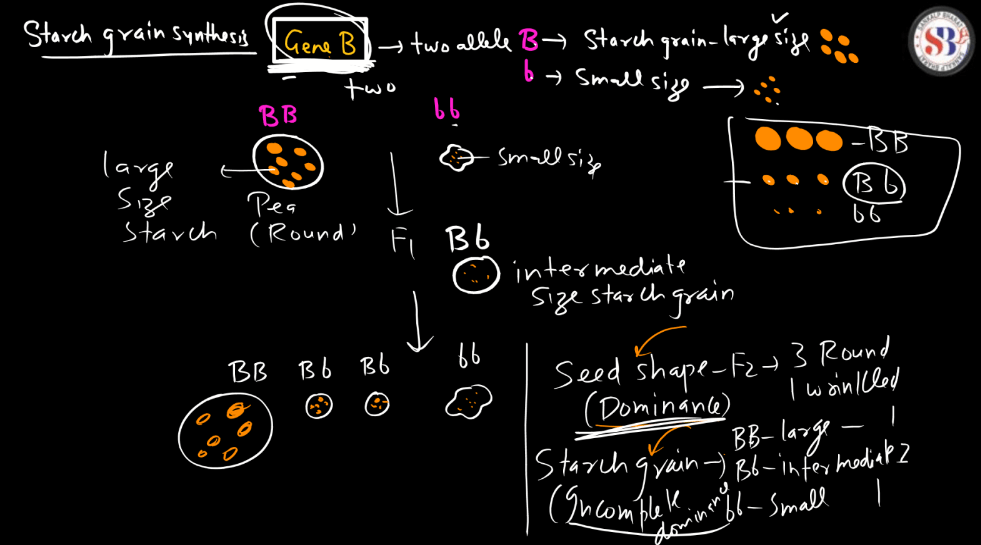 Starch grain synthesis
Gene B → two allele B → Starch grain - large size
b → Small size →
two
BB
bb
large
Size
Starch
Pea
(Round)
Small size
F1
Bb
intermediate
Size starch grain
BB
Bb
bb
BB Bb Bb bb
Seed shape - F2 → 3 Round
1 wrinkled
(Dominance)
Starch grain →
(Incomplete
dominance
BB - large - 1
Bb - intermediate 2
bb - Small 1
SB